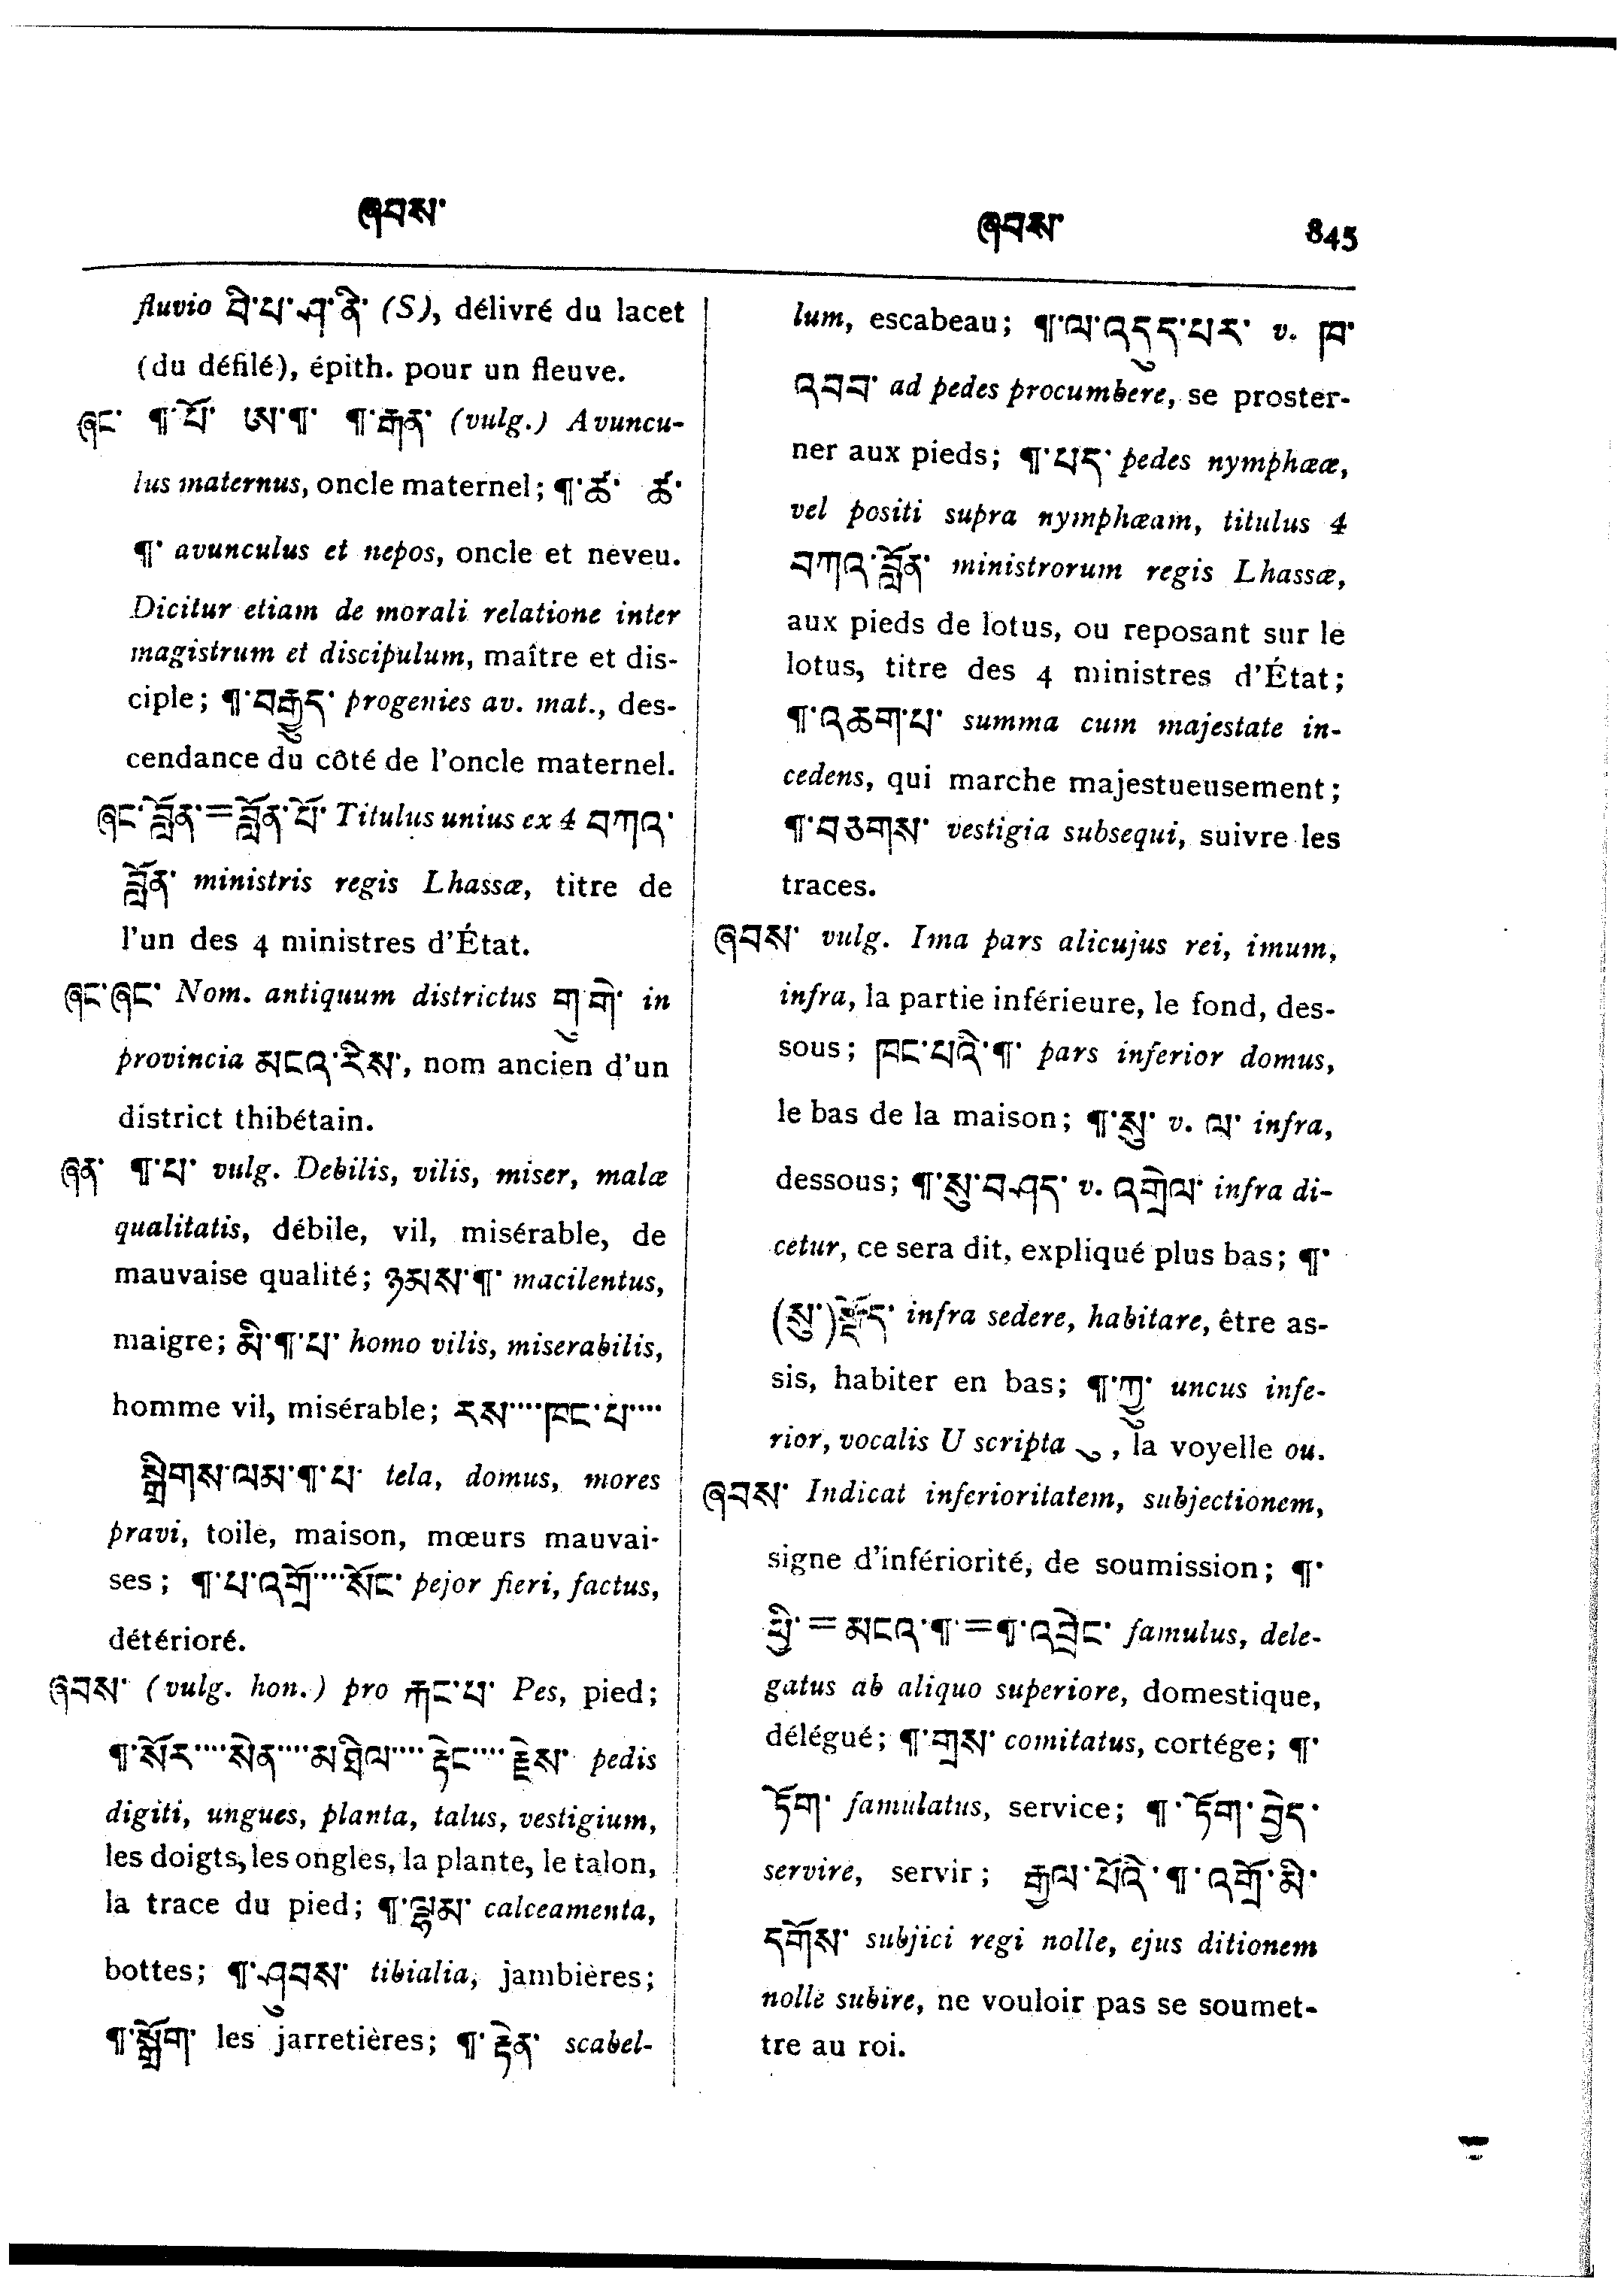 ཞབས་
ཞབས་ 845
fluvio བི་པ་ཤ་ནི་ (S), délivré du lacet
(du défilé), épith. pour un fleuve.
ཞང་ ¶་པོ་ ཨ་¶་ ¶་རྒན་ (vulg.) Avuncu-
lus maternus, oncle maternel; ¶་ཚ་ ཚ་
¶་ avunculus et nepos, oncle et neveu.
Dicitur etiam de morali relatione inter
magistrum et discipulum, maître et dis-
ciple; ¶་བརྒྱུད་ progenies av. mat., des-
cendance du côté de l'oncle maternel.
ཞང་བློན་=བློན་པོ་ Titulus unius ex 4 བཀའ་
བློན་ ministris regis Lhassæ, titre de
l'un des 4 ministres d'État.
ཞང་ཞུང་ Nom. antiquum districtus གུ་གེ་ in
provincia མངའ་རིས་, nom ancien d'un
district thibétain.
ཞན་ ¶་པ་ vulg. Debilis, vilis, miser, malæ
qualitatis, débile, vil, misérable, de
mauvaise qualité; ཉམས་¶་ macilentus,
maigre; མི་¶་པ་ homo vilis, miserabilis,
homme vil, misérable; རས་····ཁང་པ་····
སྒྲིགས་ལམ་¶་པ་ tela, domus, mores
pravi, toile, maison, mœurs mauvai-
ses; ¶་པ་འགྲོ་····སོང་ pejor fieri, factus,
détérioré.
ཞབས་ (vulg. hon.) pro རྐང་པ་ Pes, pied;
¶་སོར་····སེན་····མཐིལ་····རྟིང་····རྗེས་ pedis
digiti, ungues, planta, talus, vestigium,
les doigts, les ongles, la plante, le talon,
la trace du pied; ¶་ལྷམ་ calceamenta,
bottes; ¶་ཤུབས་ tibialia, jambières;
¶་སྒྲོག་ les jarretières; ¶་རྟེན་ scabel-
lum, escabeau; ¶་ལ་འདུད་པར་ v. ཁ་
འབབ་ ad pedes procumbere, se proster-
ner aux pieds; ¶་པད་ pedes nymphææ,
vel positi supra nymphæam, titulus 4
བཀའ་བློན་ ministrorum regis Lhassæ,
aux pieds de lotus, ou reposant sur le
lotus, titre des 4 ministres d'État;
¶་འཆག་པ་ summa cum majestate in-
cedens, qui marche majestueusement;
¶་བཅགས་ vestigia subsequi, suivre les
traces.
ཞབས་ vulg. Ima pars alicujus rei, imum,
infra, la partie inférieure, le fond, des-
sous; ཁང་པའི་¶་ pars inferior domus,
le bas de la maison; ¶་སུ་ v. ལ་ infra,
dessous; ¶་སུ་བཤད་ v. འགྲེལ་ infra di-
cetur, ce sera dit, expliqué plus bas; ¶་
(སུ་)སྡོད་ infra sedere, habitare, être as-
sis, habiter en bas; ¶་ཀྱུ་ uncus infe-
rior, vocalis U scripta ུ, la voyelle ou.
ཞབས་ Indicat inferioritatem, subjectionem,
signe d'infériorité, de soumission; ¶་
ཕྱི་=མངའ་¶་=¶་འབྲིང་ famulus, dele-
gatus ab aliquo superiore, domestique,
délégué; ¶་གྲས་ comitatus, cortége; ¶་
ཏོག་ famulatus, service; ¶་ཏོག་བྱེད་
servire, servir; རྒྱལ་པོའི་¶་འགྲོ་མི་
དགོས་ subjici regi nolle, ejus ditionem
nolle subire, ne vouloir pas se soumet-
tre au roi.